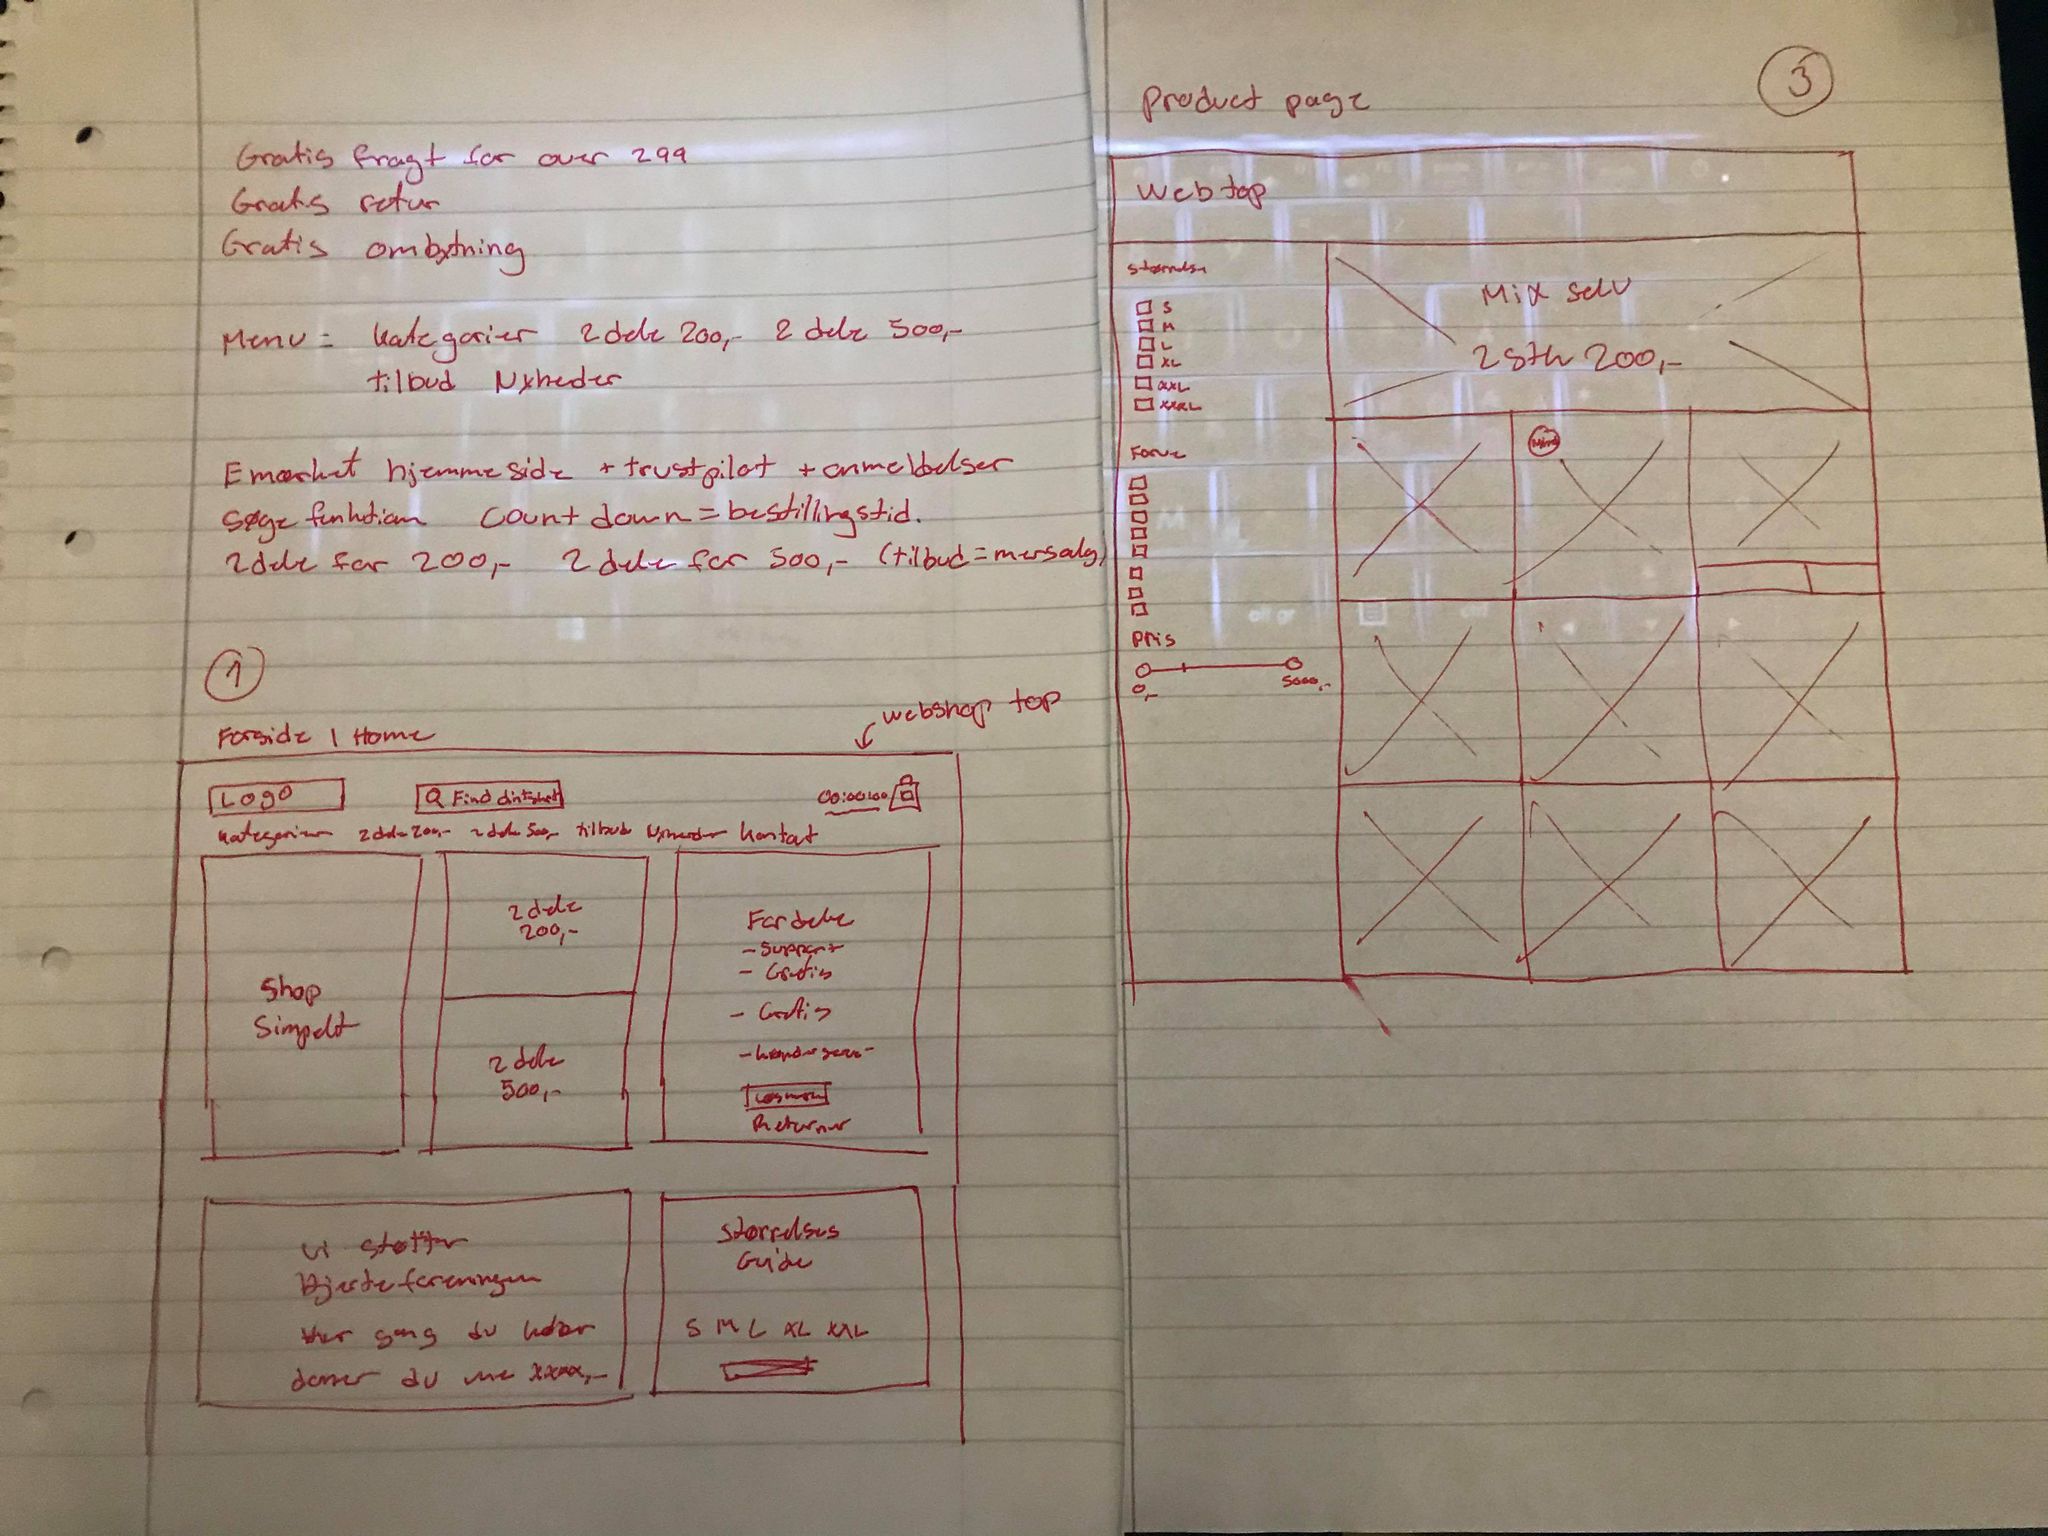 Gratis fragt for over 299
Gratis retur
Gratis ombytning
Menu = kategorier 2 dele 200,- 2 dele 500,-
tilbud Nyheder
Emærket hjemmeside + trustpilot + anmeldelser
Søge funktion Count down = bestillingstid.
2 dele for 200,- 2 dele for 500,- (tilbud = mersalg)
1
Forside / Home
webshop top
Logo
Find dintshirt
00:00:00
kategorier 2 dele 200,- 2 dele 500,- tilbud Nyheder Kontakt
Shop
Simpelt
2 dele
200,-
2 dele
500,-
Fordele
- Support
- Gratis
- Gratis
Returner
Vi støtter
Hjerteforeningen
Hver gang du køber
doner du xxxx,-
Størrelses
Guide
S M L XL XXL
3
Product page
Web top
Størrelse
S
M
L
XL
XXL
XXXL
Farve
Pris
0,-
5000,-
Mix selv
2 stk 200,-